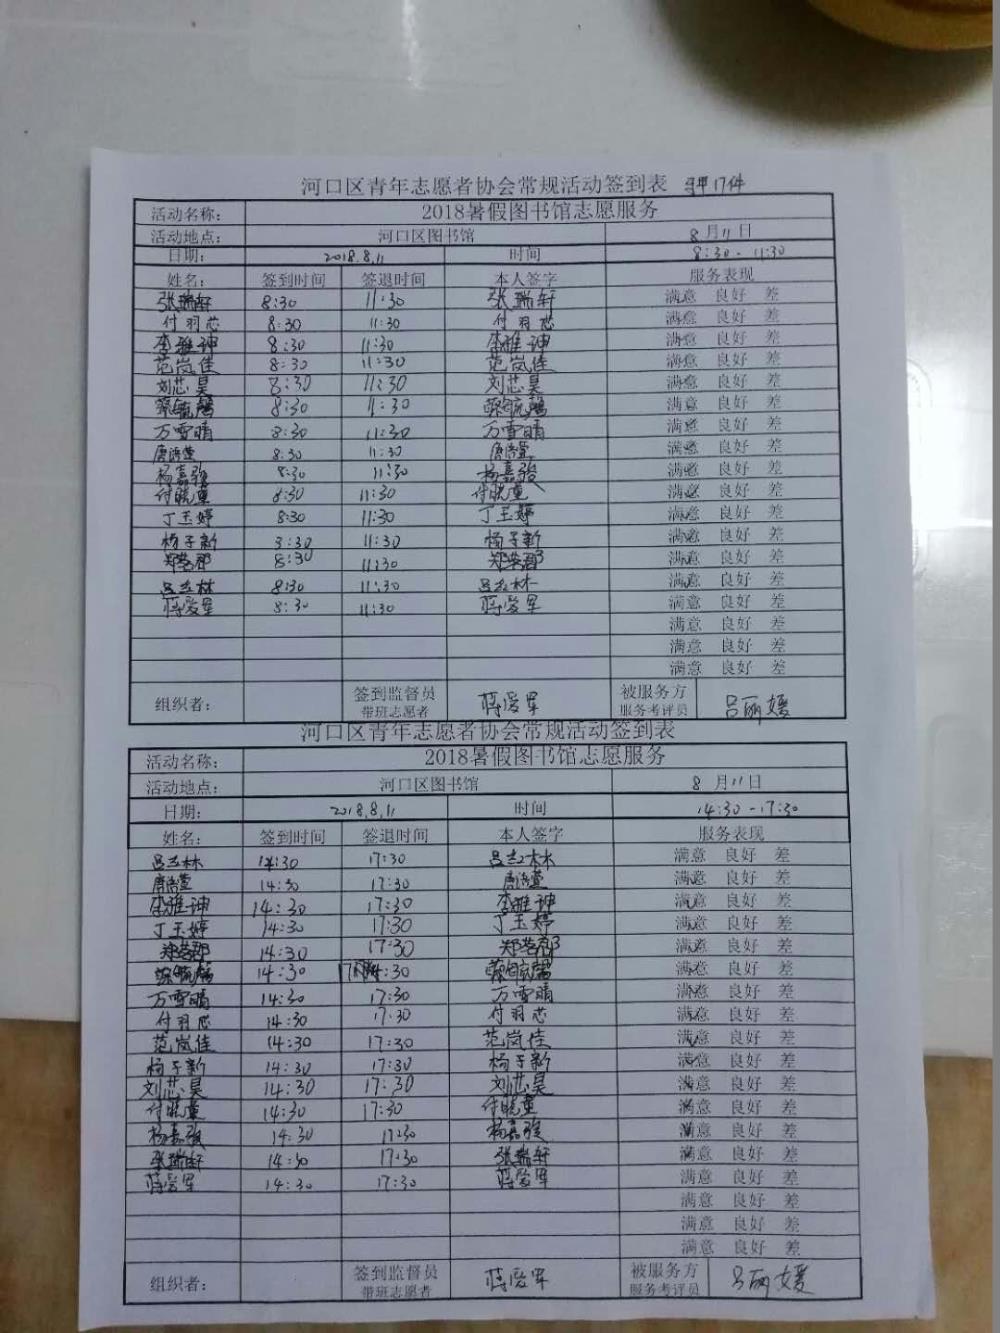 河口区青年志愿者协会常规活动签到表 17件
活动名称: 2018暑假图书馆志愿服务
活动地点: 河口区图书馆 8月11日
日期: 2018.8.11 时间 8:30-11:30
姓名: 签到时间 签退时间 本人签字 服务表现
张瑞轩 8:30 11:30 张瑞轩 满意 良好 差
付羽芯 8:30 11:30 付羽芯 满意 良好 差
李雅珅 8:30 11:30 李雅珅 满意 良好 差
范岚佳 8:30 11:30 范岚佳 满意 良好 差
刘芯昊 8:30 11:30 刘芯昊 满意 良好 差
8:30 11:30 满意 良好 差
万雪晴 8:30 11:30 万雪晴 满意 良好 差
唐浩萱 8:30 11:30 唐浩萱 满意 良好 差
杨嘉骏 8:30 11:30 杨嘉骏 满意 良好 差
付晓童 8:30 11:30 付晓童 满意 良好 差
丁玉婷 8:30 11:30 丁玉婷 满意 良好 差
杨子新 8:30 11:30 杨子新 满意 良好 差
郑茗郡 8:30 11:30 郑茗郡 满意 良好 差
吕志林 8:30 11:30 吕志林 满意 良好 差
蒋爱军 8:30 11:30 蒋爱军 满意 良好 差
满意 良好 差
满意 良好 差
满意 良好 差
组织者: 签到监督员 带班志愿者 蒋爱军 被服务方 服务考评员 吕丽媛
河口区青年志愿者协会常规活动签到表
活动名称: 2018暑假图书馆志愿服务
活动地点: 河口区图书馆 8月11日
日期: 2018.8.11 时间 14:30-17:30
姓名: 签到时间 签退时间 本人签字 服务表现
吕志林 14:30 17:30 吕志林 满意 良好 差
唐浩萱 14:30 17:30 唐浩萱 满意 良好 差
李雅珅 14:30 17:30 李雅珅 满意 良好 差
丁玉婷 14:30 17:30 丁玉婷 满意 良好 差
郑茗郡 14:30 17:30 郑茗郡 满意 良好 差
14:30 :30 满意 良好 差
万雪晴 14:30 17:30 万雪晴 满意 良好 差
付羽芯 14:30 17:30 付羽芯 满意 良好 差
范岚佳 14:30 17:30 范岚佳 满意 良好 差
杨子新 14:30 17:30 杨子新 满意 良好 差
刘芯昊 14:30 17:30 刘芯昊 满意 良好 差
付晓童 14:30 17:30 付晓童 满意 良好 差
杨嘉骏 14:30 17:30 杨嘉骏 满意 良好 差
张瑞轩 14:30 17:30 张瑞轩 满意 良好 差
蒋爱军 14:30 17:30 蒋爱军 满意 良好 差
满意 良好 差
满意 良好 差
满意 良好 差
组织者: 签到监督员 带班志愿者 蒋爱军 被服务方 服务考评员 吕丽媛